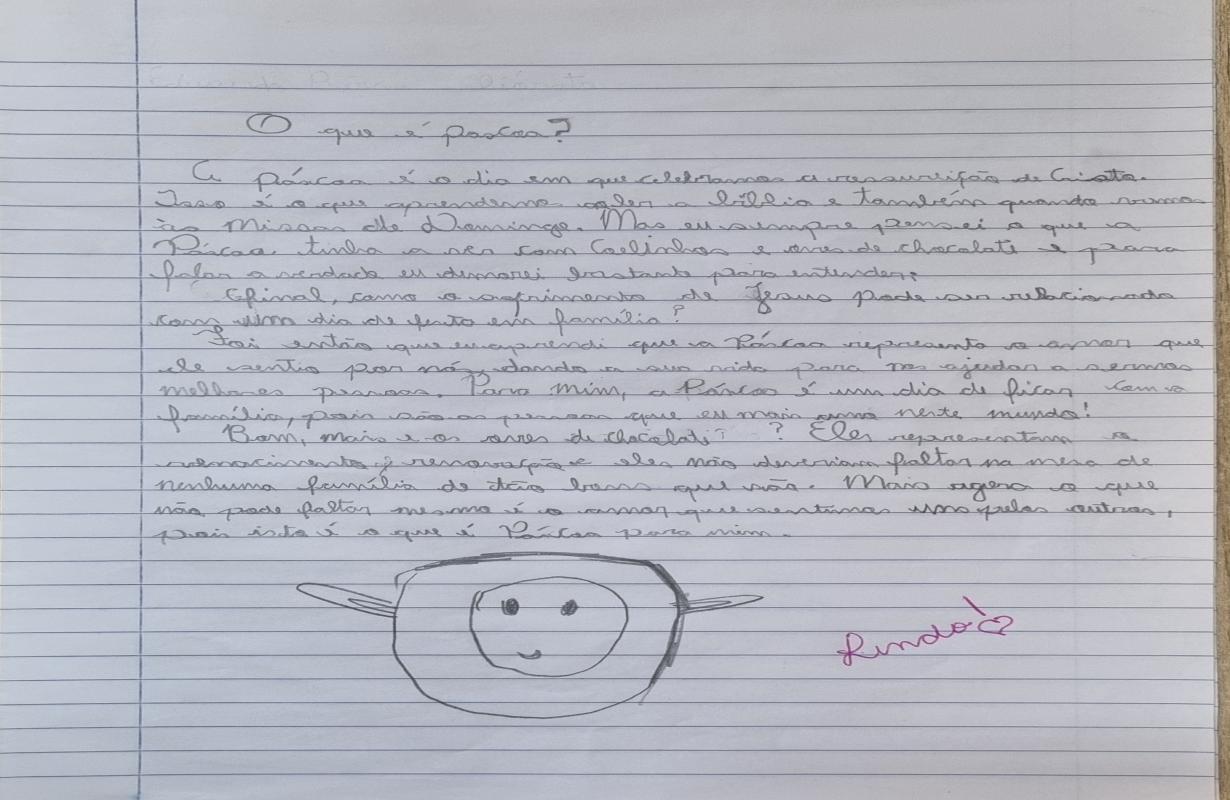 O que é pascoa?
A páscoa é o dia em que celebramos a ressureição de Cristo.
Isso é o que aprendemo coler a bíblia e também quando vamos
às missas de Domingo. Mas eu sempre pensei o que a
Páscoa tinha a ver com Coelinhos e ovos de chocolate e para
falar a verdade eu demorei bastante para entender;
Afinal, como o sofrimento de Jesus pode ser relacionado
com um dia de festa em família?
Foi então que eu aprendi que a Páscoa representa o amor que
ele sentio por nós, dando a sua vida para nos ajudar a sermos
melhores pessoas. Para mim, a Páscoa é um dia de ficar com a
família, pois são as pessoas que eu mais amo neste mundo!
Bom, mais e os ovos de chocolate? ? Eles representam o
renascimento, renovação e eles não deveriam faltar na mesa de
nenhuma família de tão bons que são. Mais agora o que
não pode faltar mesmo é o amor que sentimos uns pelos outros,
pois isto é o que é Páscoa para mim.
Lindo!